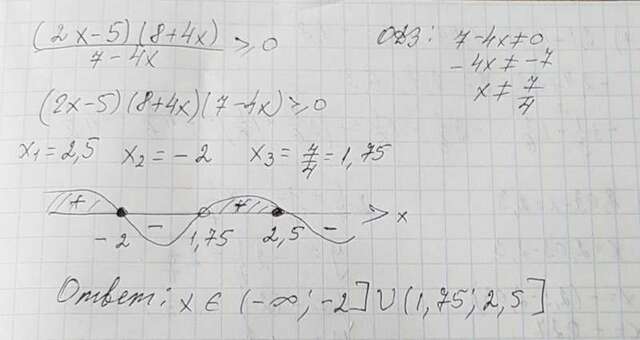 (2x-5)(8+4x)/(7-4x) ≥ 0
ОДЗ: 7-4x≠0
-4x≠-7
x≠7/4
(2x-5)(8+4x)(7-4x)≥0
x₁=2,5 x₂=-2 x₃=7/4=1,75
+ - + - > x
-2 1,75 2,5
Ответ: x ∈ (-∞; -2] ∪ (1,75; 2,5]